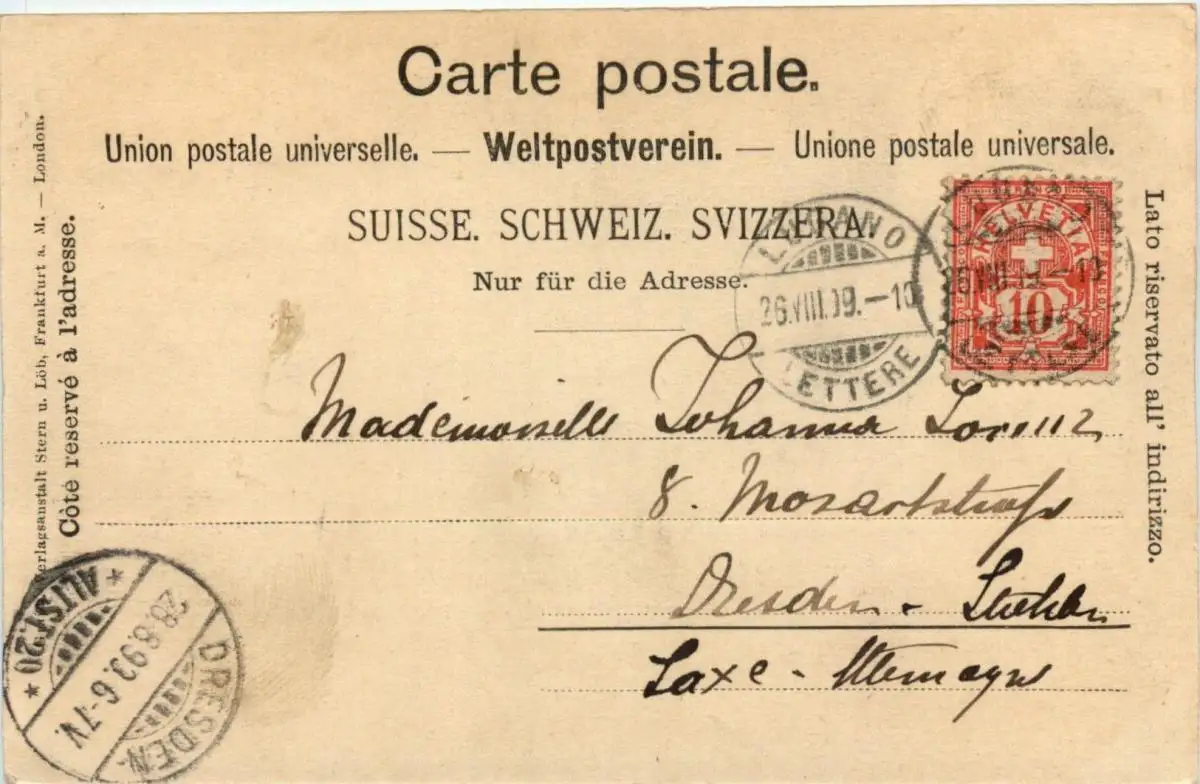 Carte postale.
Union postale universelle. — Weltpostverein. — Unione postale universale.
SUISSE. SCHWEIZ. SVIZZERA.
Nur für die Adresse.
Côte reservé à l'adresse.
Verlagsanstalt Stern u. Löb, Frankfurt a. M. — London.
Lato riservato all' indirizzo.
LUGANO
26.VIII.99.—10
LETTERE
HELVETIA
10
Mademoiselle Johanna Lorenz
8. Mozartstrasse
Dresden -
Saxe - Allemagne
* ALTST. 20 *
28.8.99.6-7V.
DRESDEN.